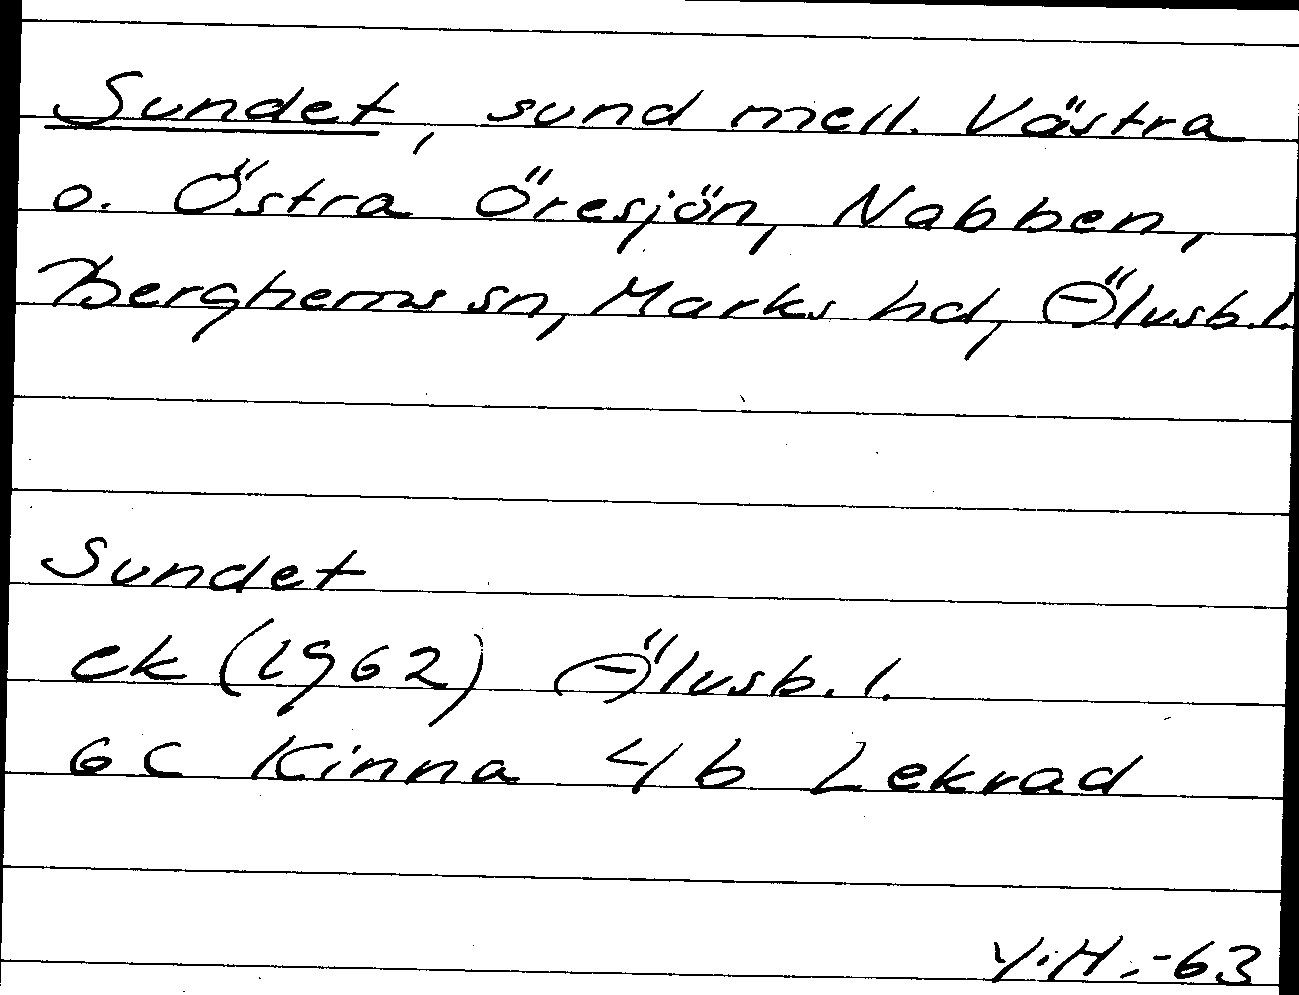 Sundet, sund mell. Västra
o. Östra Öresjön, Nabben,
Berghems sn, Marks hd, Älvsb.l.
Sundet
ek (1962) Älvsb.l.
6C Kinna 4b Lekrad
Y.H.-63